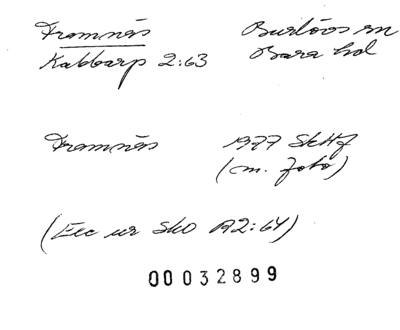 Framnäs Burlövs sn
Kabbarp 2:63 Bara hd
Framnäs 1977 SkHf
(m. foto)
(Exc ur Sko A2:64)
00032899